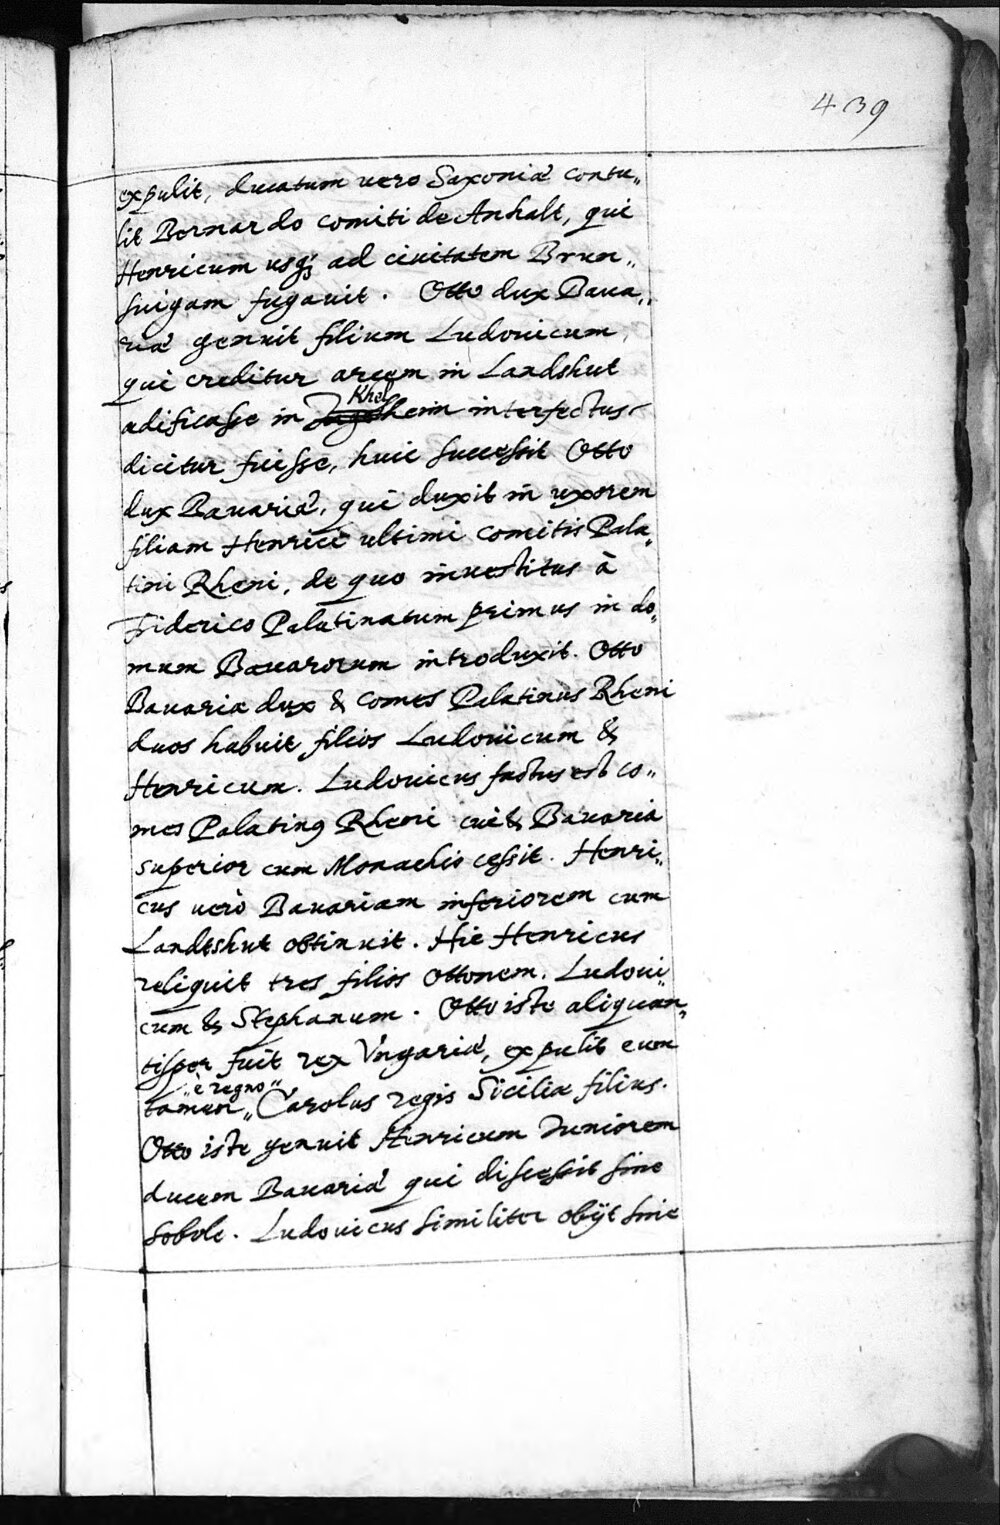 439
expulit, ducatum uero Saxoniæ contu„
lit Bernardo comiti de Anhalt, qui
Henricum usq; ad ciuitatem Brun„
suigam fugauit. Otto dux Baua„
riæ genuit filium Ludouicum,
qui creditur arcem in Landshut
ædificasse in Khel
heim interfectus
dicitur fuisse, huic successit Otto
dux Bauariæ, qui duxit in uxorem
filiam Henrici ultimi comitis Pala„
tini Rheni, de quo inuestitus à
Friderico Palatinatum primus in do„
mum Bauarorum introduxit. Otto
Bauariæ dux & comes Palatinus Rheni
duos habuit filios Ludouicum &
Henricum. Ludouicus factus est co„
mes Palatinus Rheni cui & Bauaria
superior cum Monachio cessit. Henri„
cus uerò Bauariam inferiorem cum
Landtshut obtinuit. Hic Henricus
reliquit tres filios Ottonem, Ludoui„
cum & Stephanum. Otto iste aliquan„
tisper fuit rex Vngariæ, expulit eum
„è regno„
tamen „ Carolus regis Siciliæ filius.
Otto iste genuit Henricum Iuniorem
ducem Bauariæ qui discessit sine
sobole. Ludouicus similiter obijt sine